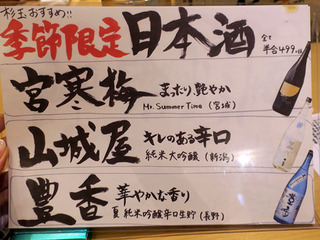 杉玉おすすめ!!
季節限定 日本酒
全て
半合499+税
宮寒梅 まったり艶やか
Mr. Summer Time (宮城)
山城屋 キレのある辛口
純米大吟醸 (新潟)
豊香 華やかな香り
夏 純米吟醸辛口生貯 (長野)